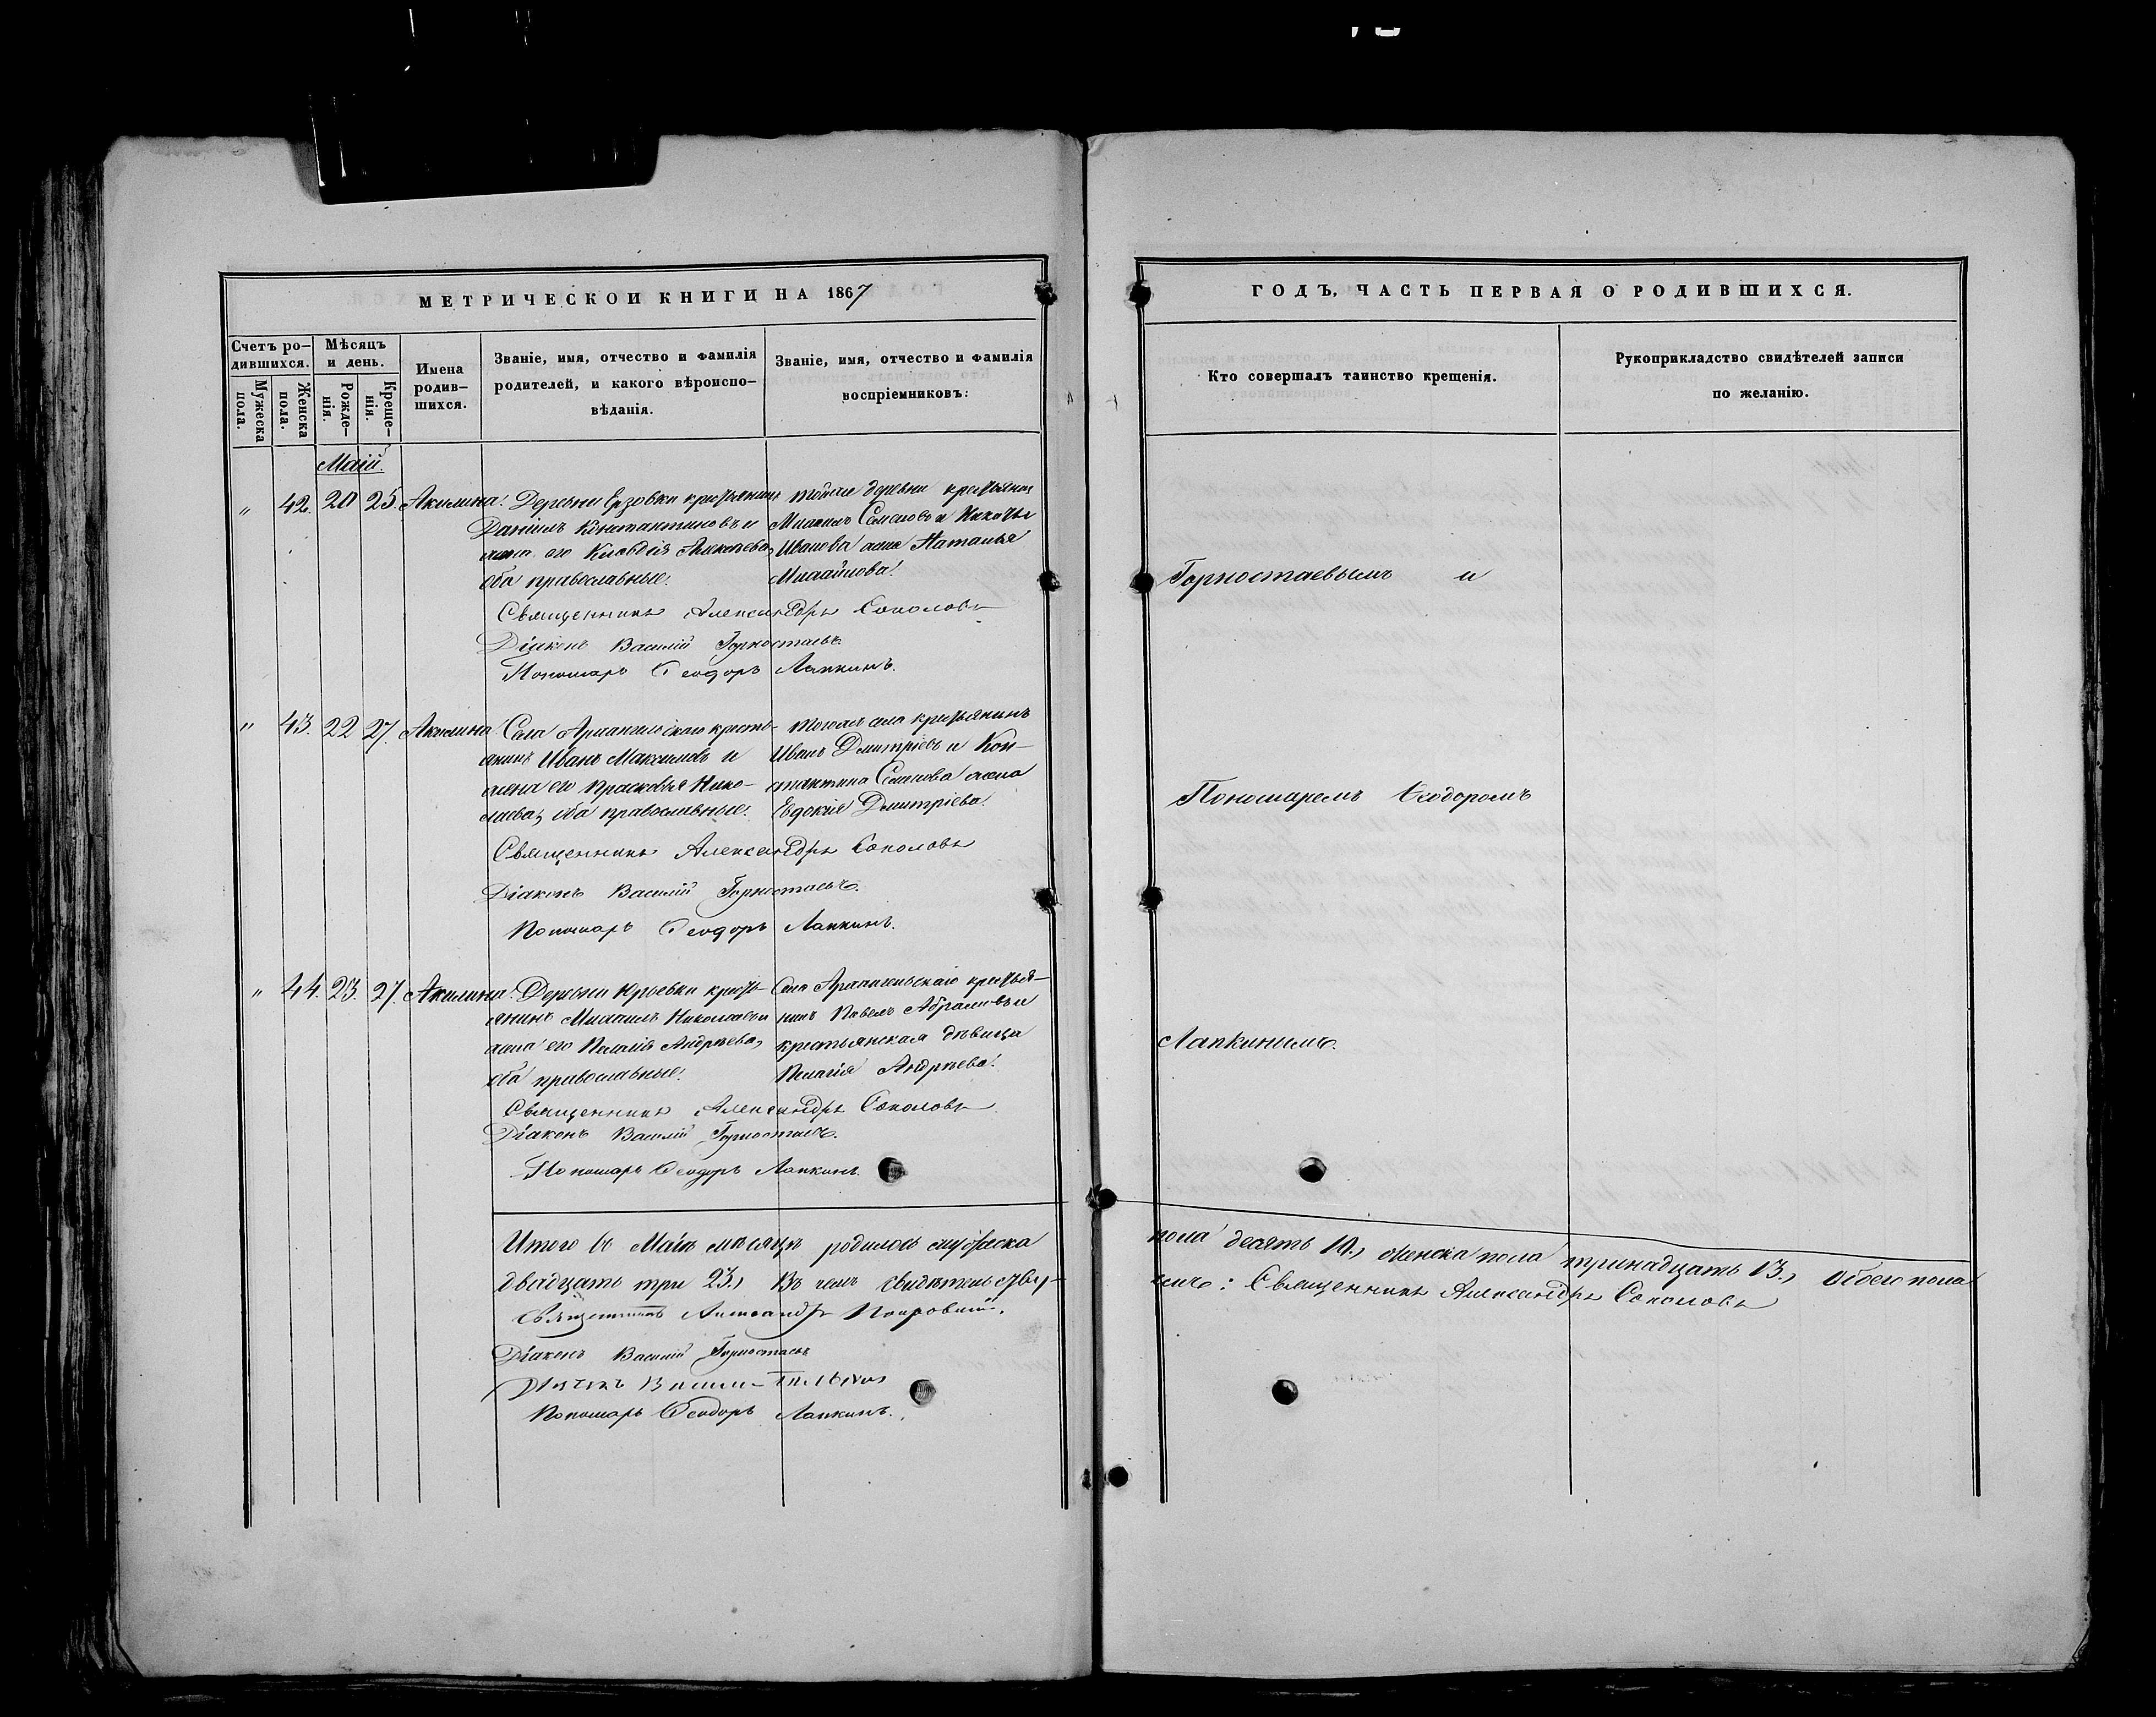 МЕТРИЧЕСКОЙ КНИГИ НА 1867
Счетъ ро-
дившихся.
Мужеска
пола.
Женска
пола.
Мѣсяцъ
и день.
Рожде-
нія.
Креще-
нія.
Имена
родив-
шихся.
Званіе, имя, отчество и фамилія
родителей, и какого вѣроиспо-
вѣданія.
Званіе, имя, отчество и фамилія
воспріемниковъ:
Маій.
" 42. 20 25. Акилина. Деревни Ерзовки крестьянинъ
Даніилъ Константиновъ и
жена его Клавдія
оба православные.
тойже деревни крестьянинъ
Михаилъ Семеновъ и
Иванова жена Наталья
Михайлова.
Священникъ Александръ Соколовъ
Діаконъ Василій Горностаевъ.
Пономарь Ѳеодоръ Лапкинъ.
" 43. 22 27. Акилина Села Архангельскаго кресть-
янинъ Иванъ Максимовъ и
жена его Прасковья Нико-
лаева, оба православные.
тогоже села крестьянинъ
Иванъ Дмитріевъ и Кон-
стантина Семенова жена
Евдокія Дмитріева.
Священникъ Александръ Соколовъ
Діаконъ Василій Горностаевъ.
Пономарь Ѳеодоръ Лапкинъ.
" 44. 23. 27. Акилина. Деревни кресть-
янинъ Михаилъ Николаевъ и
жена его Пелагія Андреева,
оба православные.
Села Архангельскаго крестья-
нинъ Павелъ Абрамовъ и
крестьянская дѣвица
Пелагія Андреева.
Священникъ Александръ Соколовъ
Діаконъ Василій Горностаевъ.
Пономарь Ѳеодоръ Лапкинъ.
Итого въ Маіѣ мѣсяцѣ родилось мужеска
двадцать три 23., Въ чемъ свидѣтельству-
Священникъ Александръ Покровскій.
Діаконъ Василій Горностаевъ
Пономарь Ѳеодоръ Лапкинъ.
ГОДЪ, ЧАСТЬ ПЕРВАЯ О РОДИВШИХСЯ.
Кто совершалъ таинство крещенія.
Рукоприкладство свидѣтелей записи
по желанію.
Горностаевымъ и
Пономаремъ Ѳеодоромъ
Лапкинымъ.
пола десять 10., женска пола тринадцать 13., Обоего пола
емъ: Священникъ Александръ Соколовъ